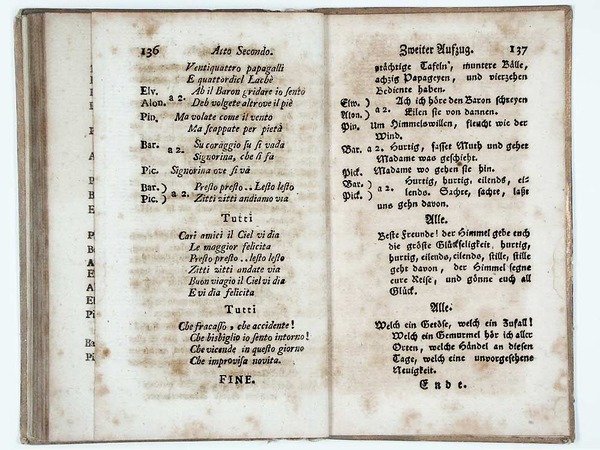 136 Atto Secondo.
Ventiquattro papagalli
E quattordici Lachè
Elv. Ah il Baron gridare io sento
Alon. a 2. Deh volgete altrove il piè
Pin. Ma volate come il vento
Ma scappate per pietà
Bar. a 2. Su coraggio su si vada
Signorina, che si fa
Pic. Signorina ove si và
Bar.) a 2. Presto presto.. Lesto lesto
Pic.) Zitti zitti andiamo via
Tutti
Cari amici il Ciel vi dia
Le maggior felicita
Presto presto.. lesto lesto
Zitti zitti andate via
Buon viagio il Ciel vi dia
E vi dia felicita
Tutti
Che fracasso, che accidente!
Che bisbiglio io sento intorno!
Che vicende in questo giorno
Che improvisa novita.
FINE.
Zweiter Aufzug. 137
prächtige Tafeln, muntere Bälle,
achzig Papageyen, und vierzehen
Bediente haben.
Elw. ) Ach ich höre den Baron schreyen
Alon. ) a 2. Eilen sie von dannen.
Pin. Um Himmelswillen, fleucht wie der
Wind.
Bar. a 2. Hurtig, fasset Muth und gehet
Madame was geschieht.
Pick. Madame wo gehen sie hin.
Bar. ) a 2. Hurtig, hurtig, eilends, ei-
Pick. ) lends. Sachte, sachte, laßt
uns gehn davon.
Alle.
Beste Freunde! der Himmel gebe euch
die größte Glückseligkeit, hurtig,
hurtig, eilends, eilends, stille, stille
geht davon, der Himmel segne
eure Reise, und gönne euch all
Glück.
Alle.
Welch ein Getöse, welch ein Zufall!
Welch ein Gemurmel hör ich aller
Orten, welche Händel an diesen
Tage, welch eine unvorgesehene
Neuigkeit.
Ende.